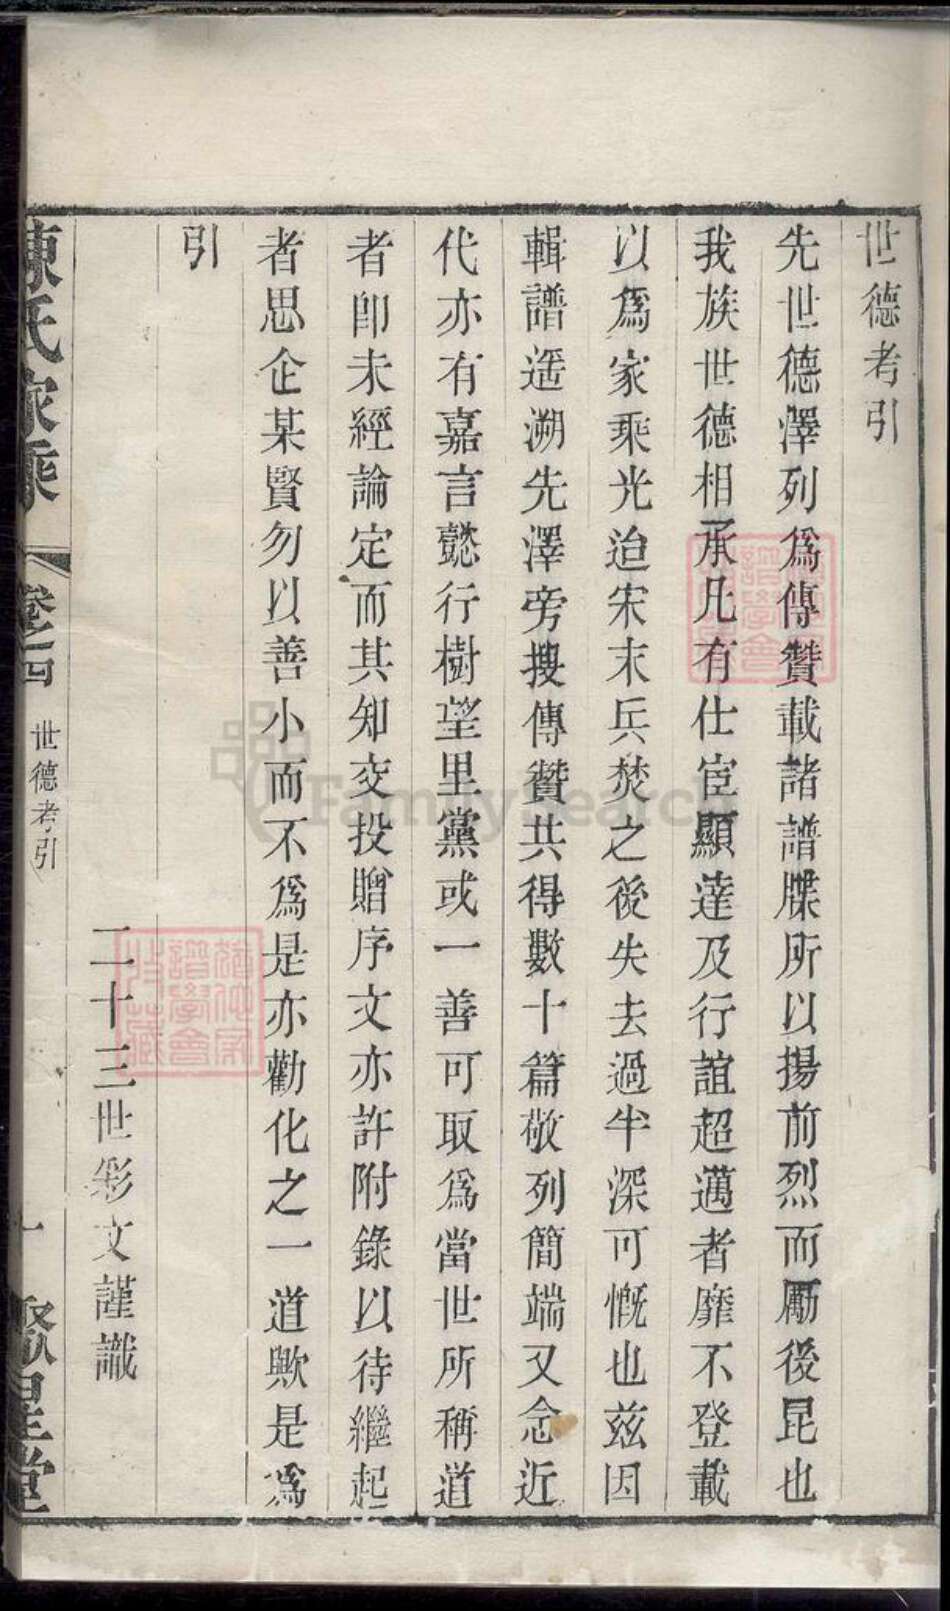 世德考引
先世德澤列爲傳贊載諸譜牒所以揚前烈而勵後昆也
我族世德相承凡有仕宦顯達及行誼超邁者靡不登載
以爲家乘光迨宋末兵焚之後失去過半深可慨也茲因
輯譜遥溯先澤旁搜傳贊共得數十篇敬列簡端又念近
代亦有嘉言懿行樹望里黨或一善可取爲當世所稱道
者卽未經論定而其知交投贈序文亦許附錄以待繼起
者思企某賢勿以善小而不爲是亦勸化之一道歟是爲
引
二十三世彩文謹識
陳氏家乘
卷之四
世德考引
一
聚星堂
FamilySearch